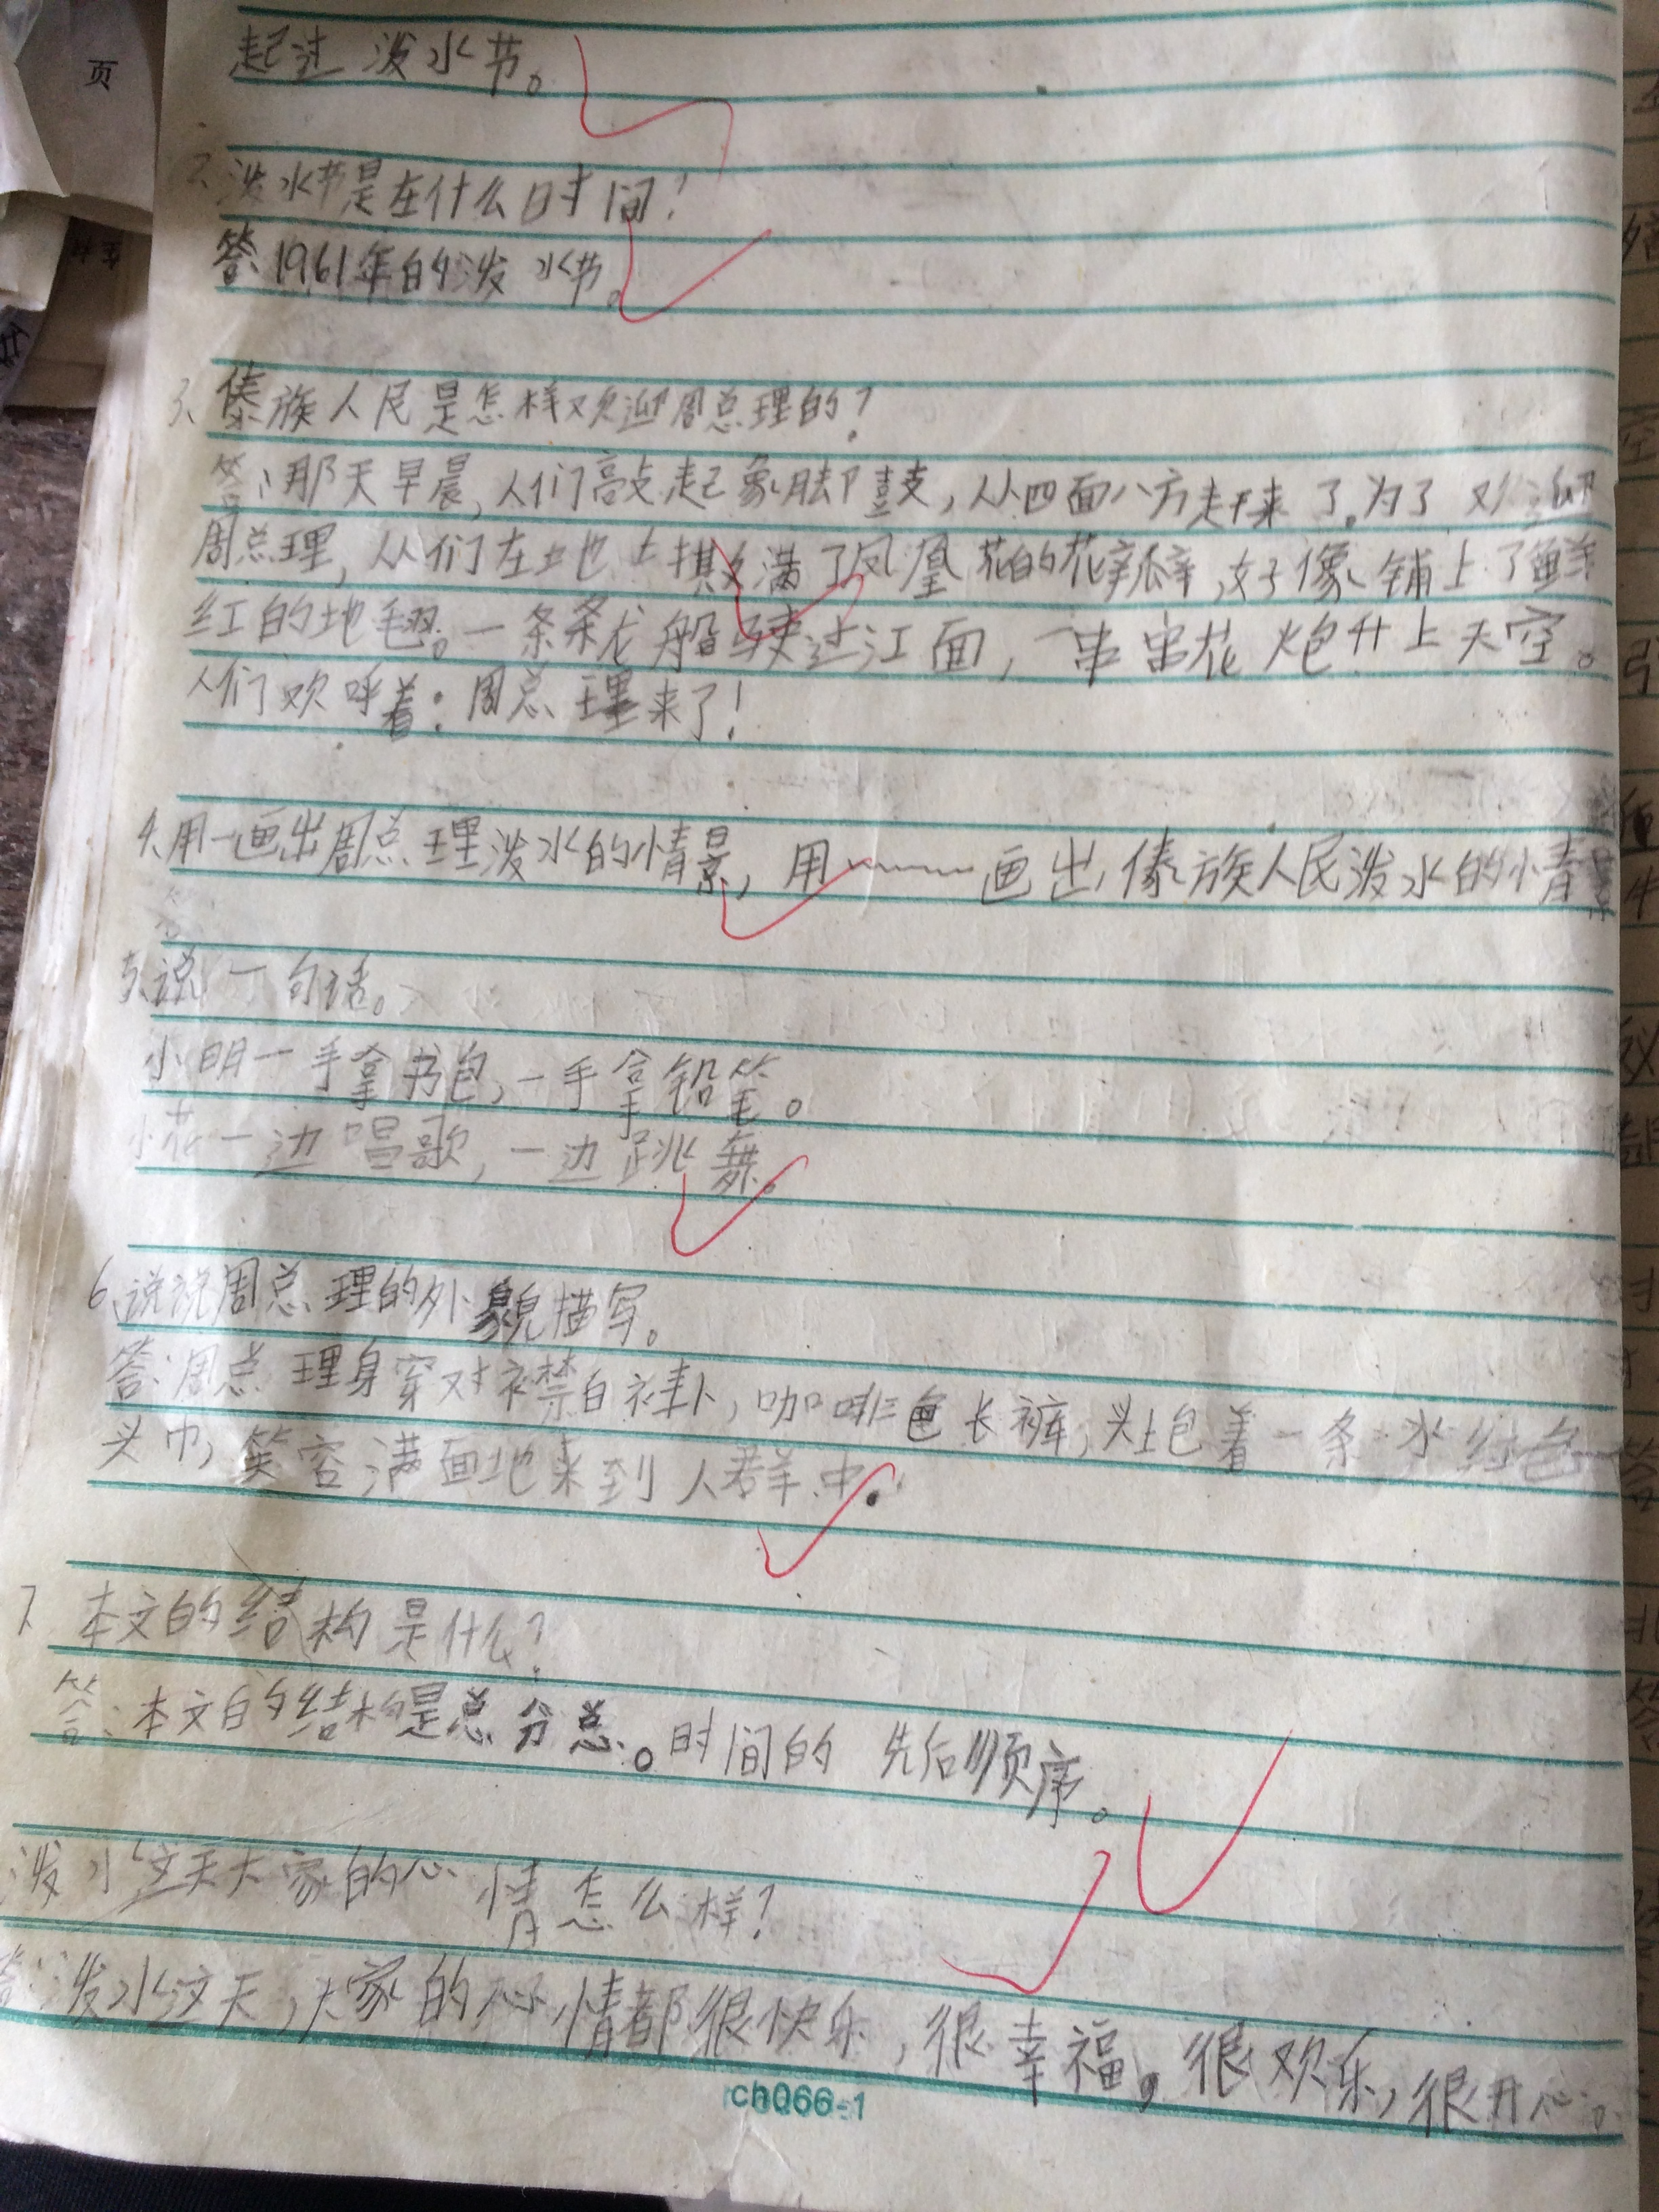 页
起过泼水节。
2、泼水节是在什么时间?
答、1961年的泼水节。
3、傣族人民是怎样欢迎周总理的?
答、那天早晨,人们敲起象脚鼓,从四面八方赶来了。为了欢迎
周总理,人们在地上撒满了凤凰花的花瓣,好像铺上了鲜
红的地毯。一条条龙船驶过江面,一串串花炮升上天空。
人们欢呼着:周总理来了!
4、用一画出周总理泼水的情景,用﹏﹏画出傣族人民泼水的情景
5、说一句话。
小明一手拿书包,一手拿铅笔。
小花一边唱歌,一边跳舞。
6、说说周总理的外貌描写。
答:周总理身穿对襟白褂,咖啡色长裤,头上包着一条水红色
头巾,笑容满面地来到人群中。
7、本文的结构是什么?
答:本文的结构是总分总。时间的先后顺序。
泼水这天大家的心情怎么样?
答:泼水这天,大家的心情都很快乐,很幸福,很欢乐,很开心。
ch066-1